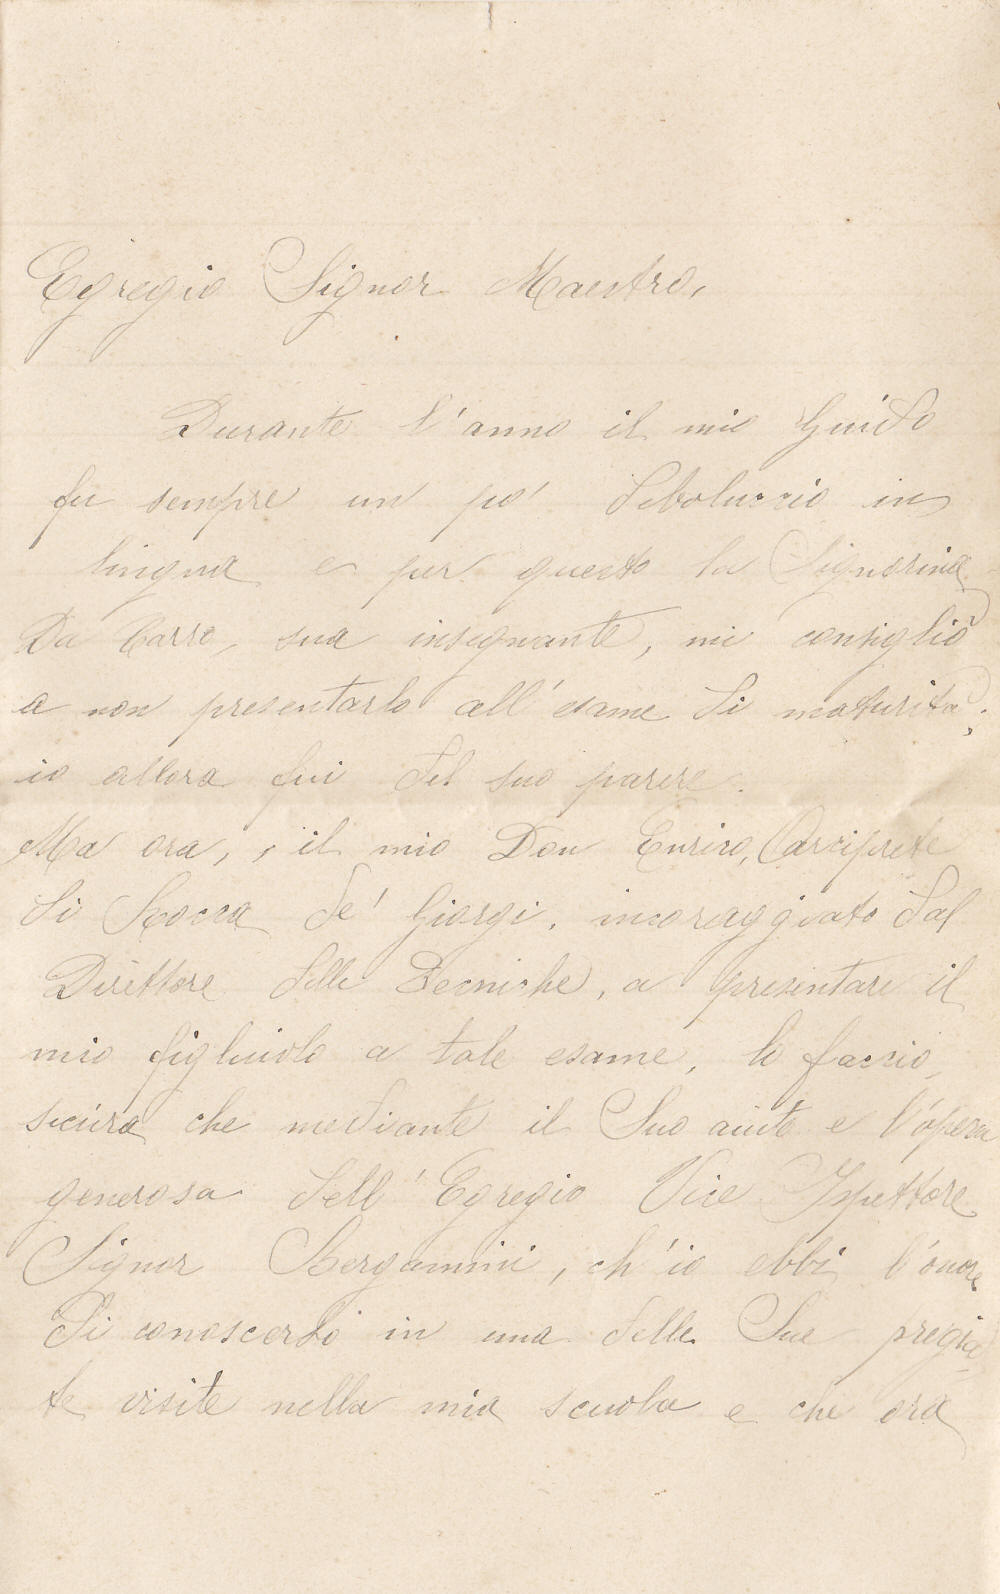 Egregio Signor Maestro,
Durante l'anno il mio Guido
fu sempre un po' deboluccio in
lingua e per questo la Signorina
Da Carre, sua insegnante, mi consigliò
a non presentarlo all'esame di maturità;
io allora fui del suo parere.
Ma ora, il mio Don Enrico, Arciprete
di Rocca de' Giorgi, incoraggiato dal
Direttore delle Tecniche, a presentare il
mio figliuolo a tale esame, lo faccio,
sicura che mediante il Suo aiuto e l'opera
generosa dell'Egregio Vice Ispettore
Signor Bergamini, ch'io ebbi l'onore
di conoscerlo in una delle Sue pregia-
te visite nella mia scuola e che ora